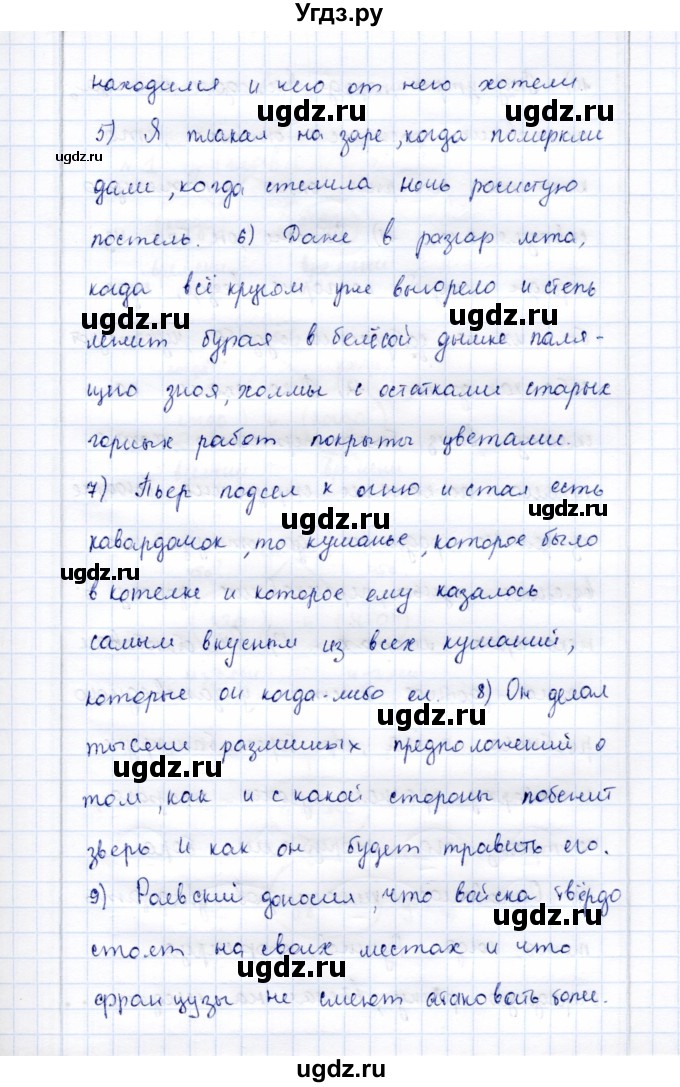 Угдз.ру
находился и чего от него хотели
ugdz.ru
5) Я плакал на заре, когда померкли
ugdz.ru
ugdz.ru
дали, когда стелила ночь росистую
постель. 6) Даже в разгар лета,
ugdz.ru
когда всё кругом уже выгорело и степь
ugdz.ru
ugdz.ru
лежит бурая в белёсой дымке паля-
щего зноя, холмы с остатками старых
горных работ покрыты цветами.
7) Пьер подсел к огню и стал есть
ugdz.ru
ugdz.ru
кавардачок, то кушанье, которое было
ugdz.ru
в котелке и которое ему казалось
самым вкусным из всех кушаний,
которые он когда-либо ел. 8) Он делал
ugdz.ru
тысячи различных предположений о
ugdz.ru
том, как и с какой стороны побежит
зверь и как он будет травить его.
9) Раевский доносил, что войска твёрдо
ugdz.ru
стоят на своих местах и что
ugdz.ru
французы не смеют атаковать более.
ugdz.ru